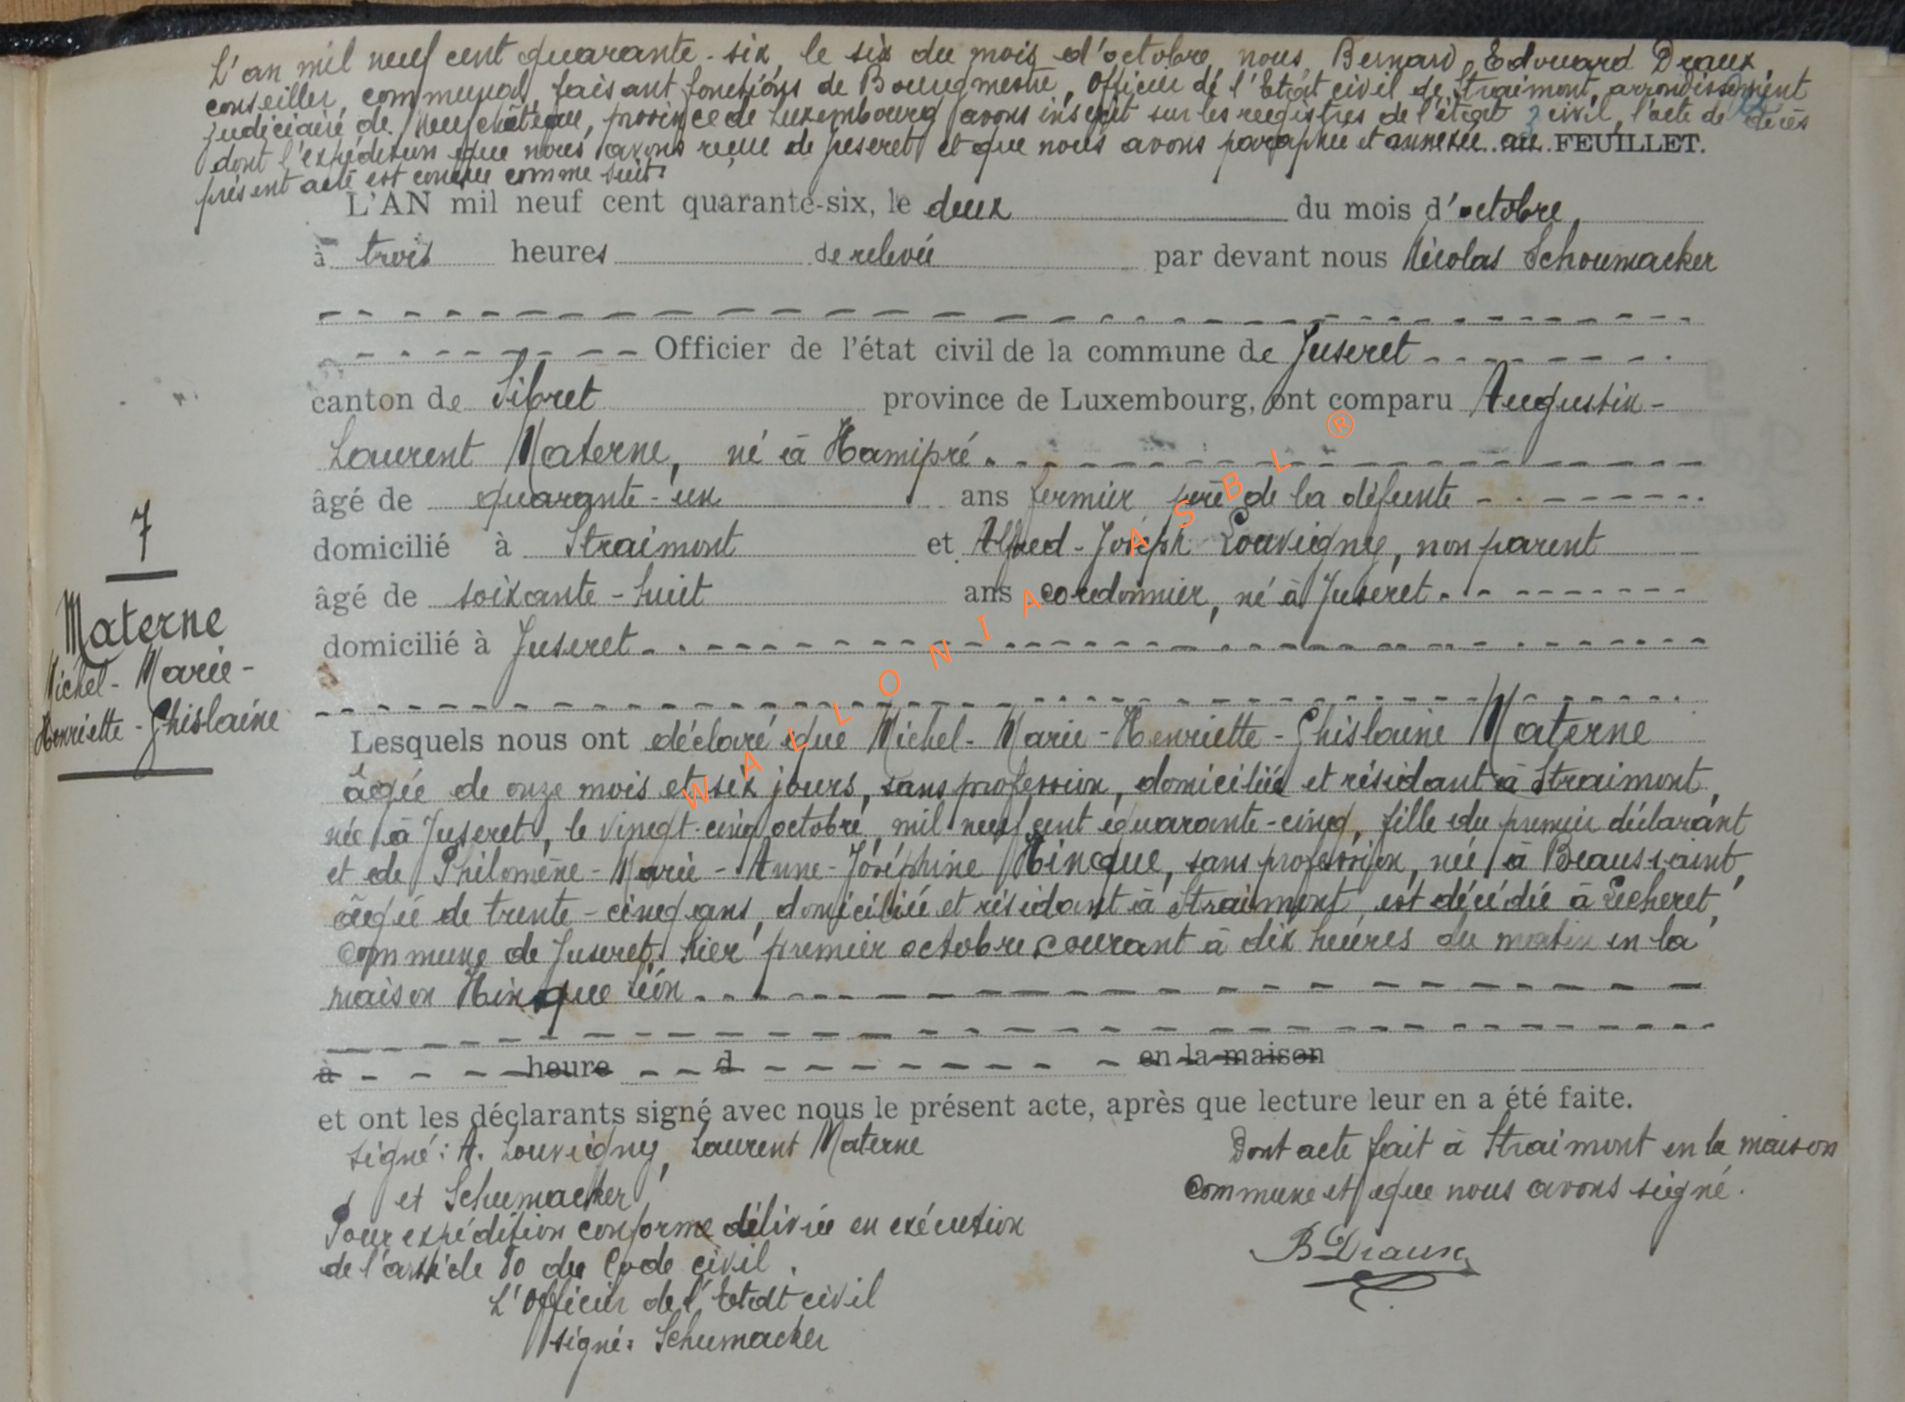 L'an mil neuf cent quarante-six, le six du mois d'octobre, nous Bernard, Edouard Draux,
conseiller communal, faisant fonctions de Bourgmestre, Officier de l'Etat civil de Straimont, arrondissement
judiciaire de Neufchâteau, province de Luxembourg avons inscrit sur les registres de l'état civil, l'acte de décès
dont l'expédition que nous avons reçue de Juseret et que nous avons paraphée et annexée au FEUILLET.
présent acte est conçue comme suit:
L'AN mil neuf cent quarante-six, le deux du mois d'octobre,
à trois heures de relevée par devant nous Nicolas Schoumacker
Officier de l'état civil de la commune de Juseret
canton de Sibret province de Luxembourg, ont comparu Augustin-
Laurent Materne, né à Hamipré.
âgé de quarante-un ans fermier père de la défunte
domicilié à Straimont et Alfred-Joseph Louvigny, non parent
âgé de soixante-huit ans cordonnier, né à Juseret.
domicilié à Juseret
7
Materne
Michel-Marie-
Henriette-Ghislaine
Lesquels nous ont déclaré que Michel-Marie-Henriette-Ghislaine Materne
âgée de onze mois et six jours, sans profession, domiciliée et résidant à Straimont,
née à Juseret, le vingt-cinq octobre, mil neuf cent quarante-cinq, fille du premier déclarant
et de Philomène-Marie-Anne-Joséphine Hincque, sans profession, née à Beausaint,
âgée de trente-cinq ans, domiciliée et résidant à Straimont, est décédée à Lescheret,
commune de Juseret, hier premier octobre courant à dix heures du matin en la
maison Hinque Léon
à heure d en la maison
et ont les déclarants signé avec nous le présent acte, après que lecture leur en a été faite.
signé: A. Louvigny, Laurent Materne
et Schumacker
Pour expédition conforme délivrée en exécution
de l'article 80 du Code civil.
L'Officier de l'Etat civil
signé: Schumacker
Dont acte fait à Straimont en la maison
commune et que nous avons signé.
B Draux
WALLONIA ASBL ®